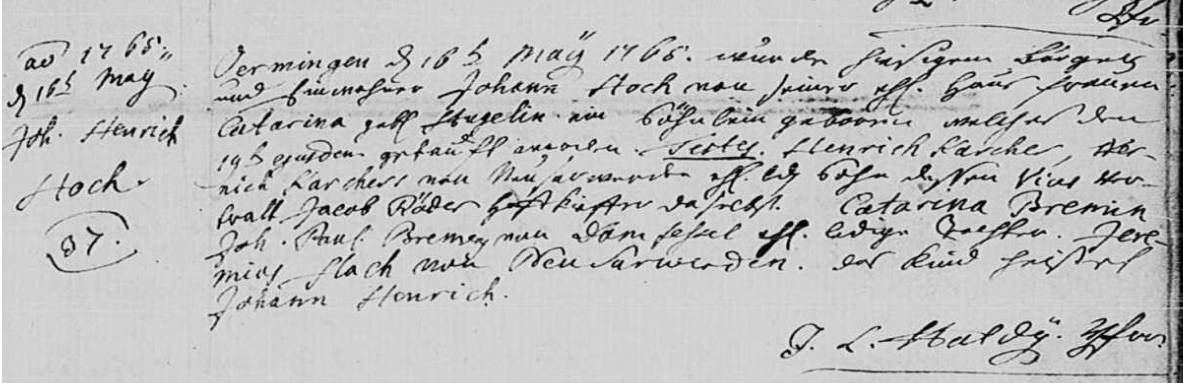 ao 1765.
d 16t May
Joh. Henrich
Hoch
87.
Oermingen d 16t Maÿ 1765. wurde hiesigem Bürger
und Einwohner Johann Hoch von seiner ehl. Haus frauen
Catarina gebl ein Söhnlein geboren welches den
19t ejusdem getauft worden. Testes. Henrich Karcher,
Karchers von Neusarwerden ehl. led Sohn dessen Vices
Jacob Röder daselbst. Catarina Bremin
Joh. Paul Bremen von ehl. ledige Tochter. Jere-
mias Hoch von Neu Sarwerden. das Kind heisset
Johann Henrich.
J. L. Haldÿ. Pfarr